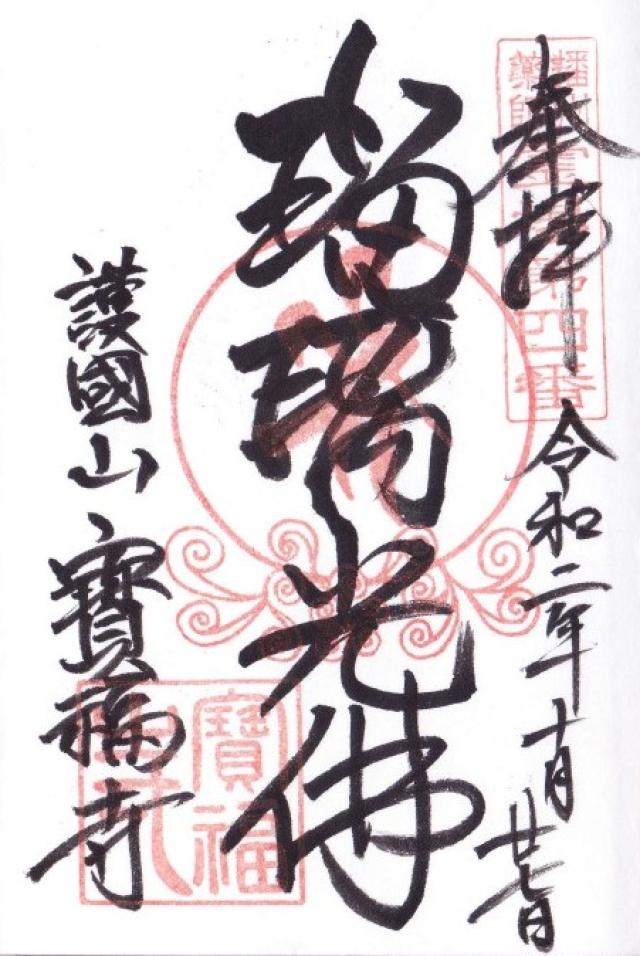 奉拝
令和二年十月廿七日
第四番
瑠璃光佛
護國山寳福寺
寳福